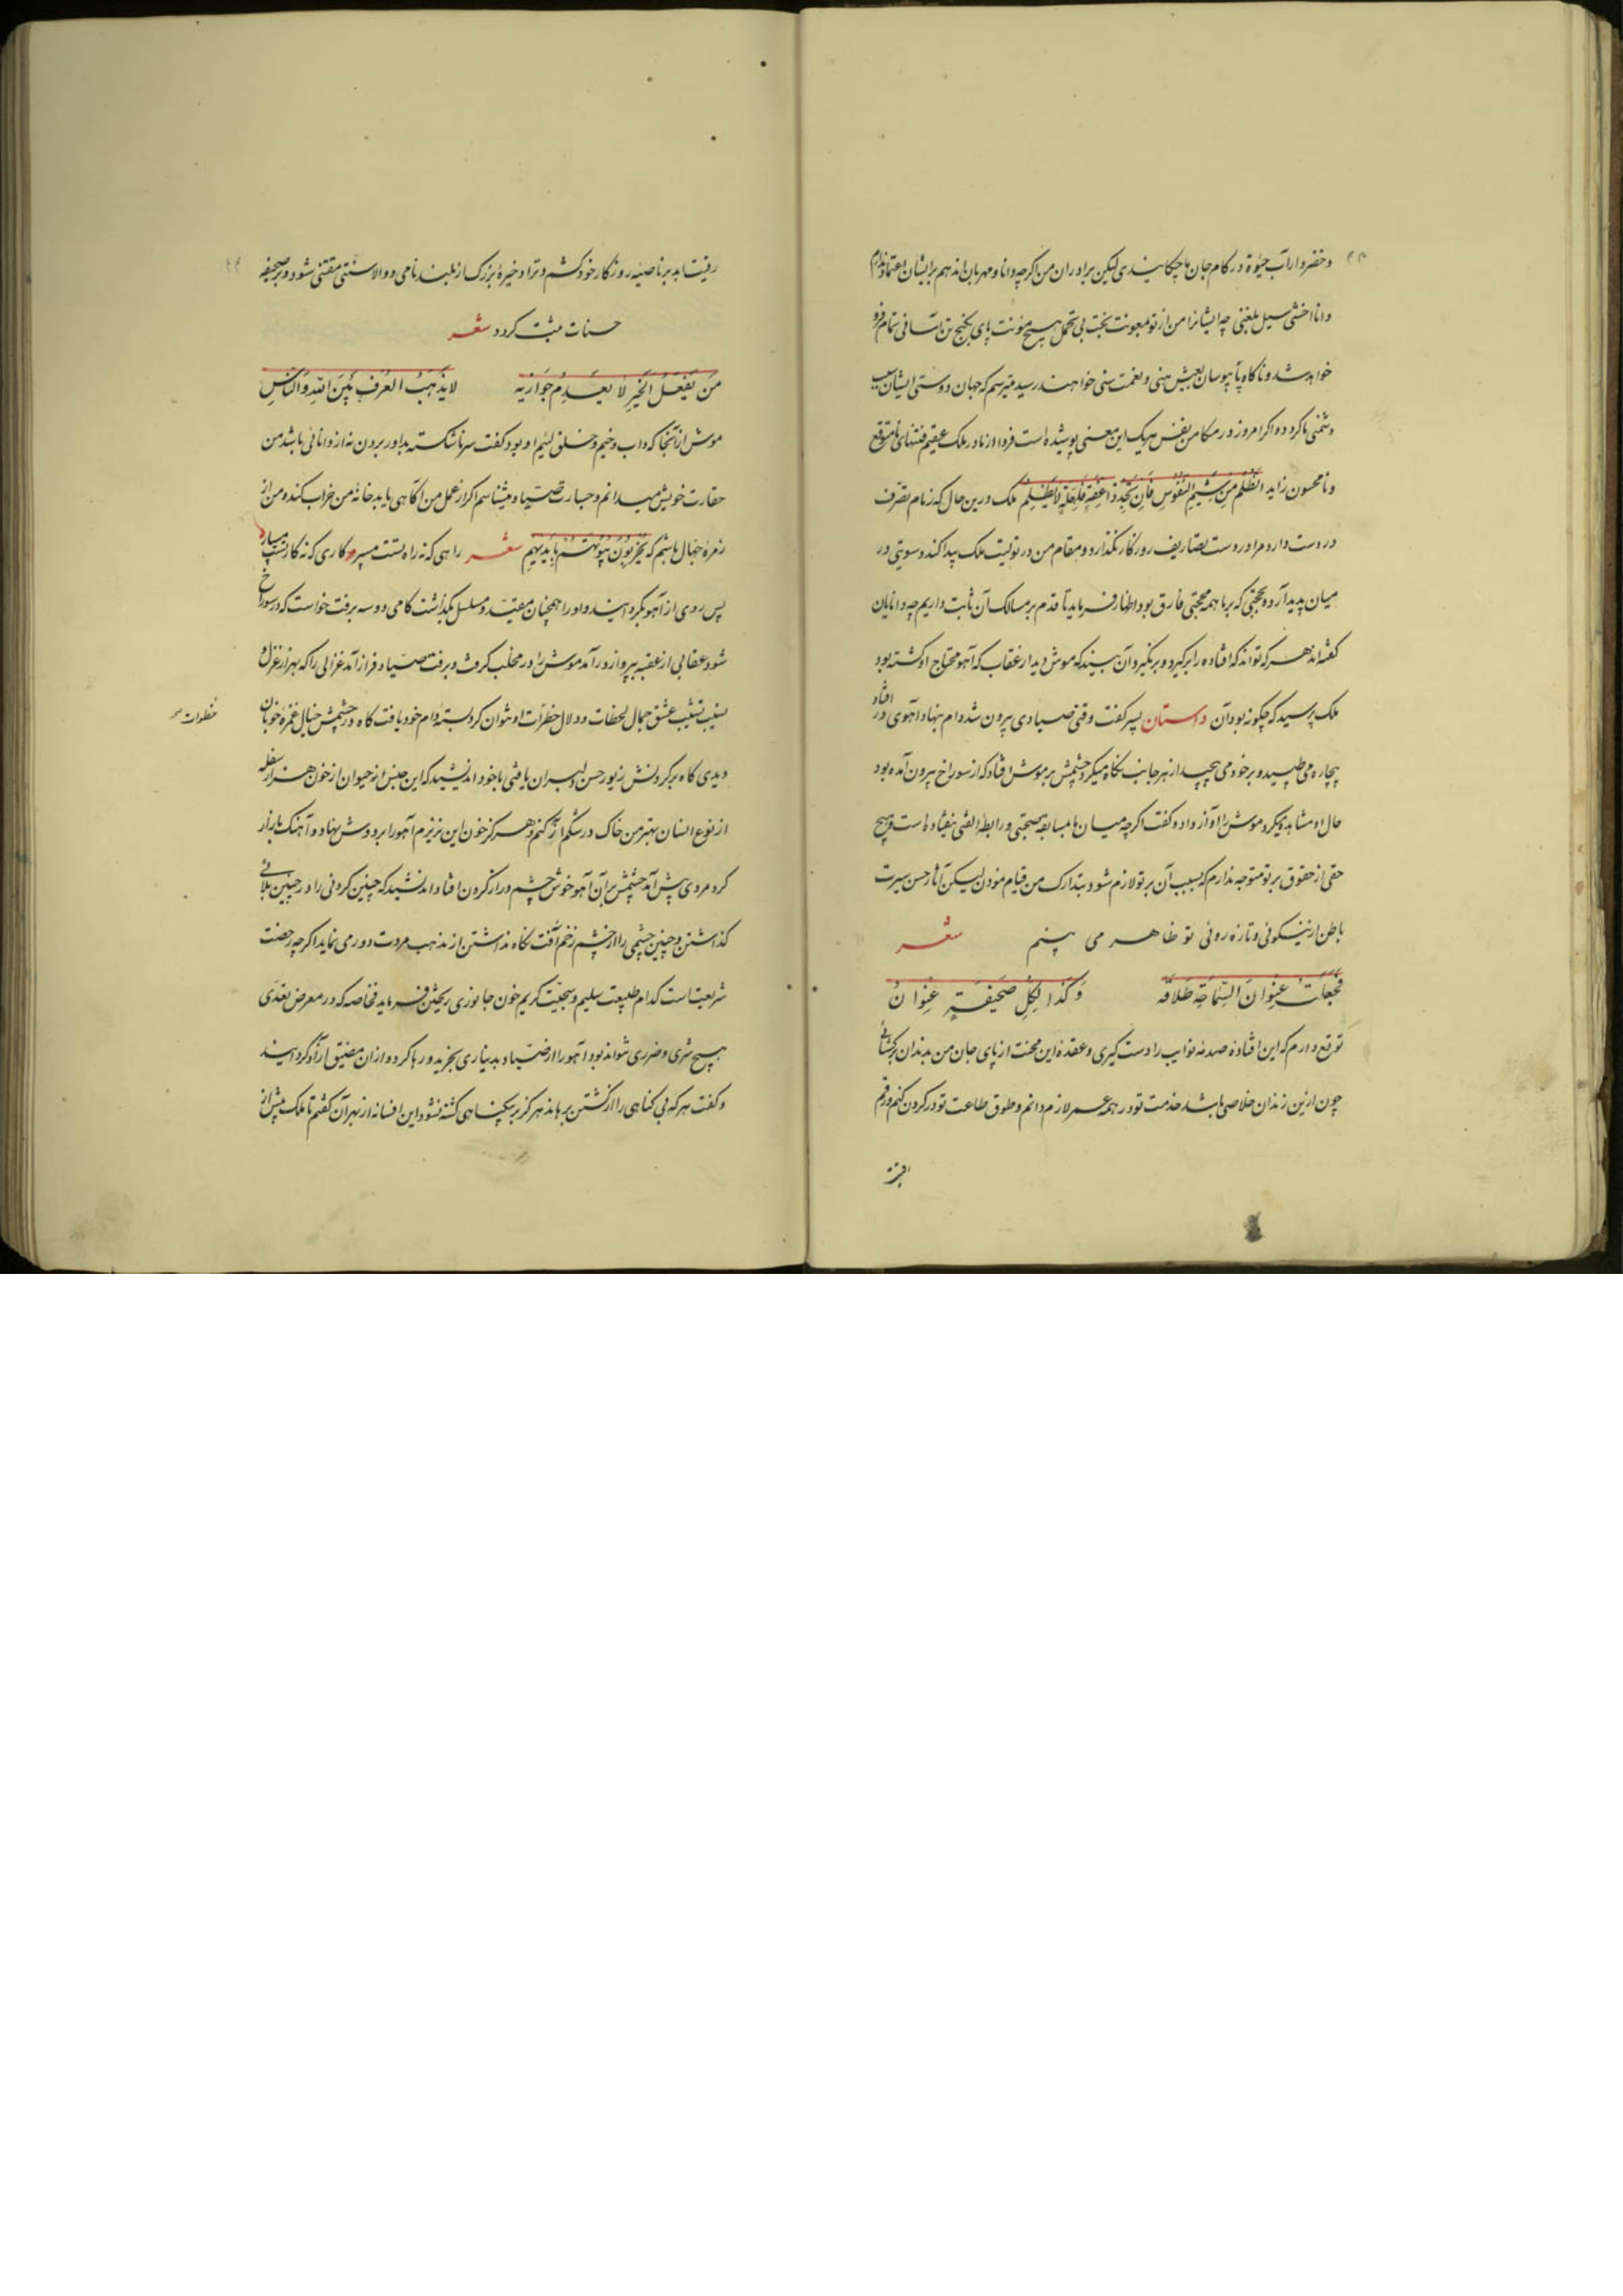 وخضروار آب حیوة در کام جان ما چکانیدی لیکن برادران من اگرچه دانا و مهربان‌اند هم برایشان اعتماد ندارم
وانا اخشی سیل بلغتی چه ایشانرا من از تو بمعونت بخت بی تحمل هیچ مؤنت پای بکنج تن آسانی تمام فرو
خواهد شد و ناکاه نابیوسان بعیش هنی و نعمت سنی خواهند رسید میترسم که جهان دوستی ایشان سبب
دشمنی ما کردد و اکر امروز در مکامن نفس هریک این معنی پوشیده است فردا از مادر ملک عقیم فتنهای نامتوقع
و نامحسوس زاید الظلم من شیم النفوس فان تجد ذا عفة فلعلة لا یظلم ملک درین حال که زمام تصرف
در دست دارد مرا در دست تصاریف روزکار نکذارد و مقام من در تولیت ملک پیدا کند و سویتی در
میان پدید آرد و بحجتی که بر ما همه حجتی فارق بود اظهار فرماید تا قدم بر مسالک آن ثابت داریم چه دانایان
کفته‌اند هر که تواند که افتاده را برکیرد و برنکیرد آن بیند که موش دید از عقاب که آهو محتاج او کشته بود
ملک پرسید که چکونه بود آن داستان پسر کفت وقتی صیادی بیرون شد دام بنهاد آهوی در افتاد
بیچاره می طپید و بر خود می پیچید از هر جانب نکاه میکرد چشمش بر موش افتاد که از سوراخ بیرون آمده بود
حال او مشاهده میکرد موش را آواز داد و کفت اکرچه میان ما سابقه صحبتی و رابطه الفتی نیفتاده است و هیچ
حقی از حقوق بر تو متوجه ندارم که بسبب آن بر تو لازم شود بتدارک من قیام نمودن لیکن آثار حسن سیرت
باطن از نیکوئی و تازه روئی تو ظاهر می بینم شعر
فجعلت عنوان السماحة طلاقة وکذا لکل صحیفة عنوان
توقع دارم که این افتاده صدمه نوایب را دست کیری و عقده این محنت از پای جان من بدندان برکشائی
چون ازین زندان خلاصی باشد خدمت تو در همه عمر لازم دانم و طوق طاعت تو در کردن کنم و رقم
رقیت ابد بر ناصیه روزکار خود کشم و ترا ذخیرهٔ بزرک از بلند نامی و والا سنتی مقتنی شود و بر صحیفه
حسنات مثبت کردد شعر
من یفعل الخیر لا یعدم جوازیه لا یذهب العرف بین الله والناس
موش از آنجا که داب وخیم و خلق لئیم او بود کفت سر ناشکسته بداور بردن نه از دانائی باشد من
حقارت خویش میدانم و جسارت صیاد میشناسم اکر از عمل من آکاهی یابد خانهٔ من خراب کند و من از
زمرهٔ جهال باشم که یخربون بیوتهم بایدیهم شعر راهی که نه راه تست مسپر کاری که نه کار تست مسپار
پس روی از آهو بکردانید و او را همچنان مقید و مسلسل بکذاشت کامی دو سه برفت خواست که در سوراخ
شود عقابی از عقبه پرواز در آمد موش را در مخلب کرفت و برفت صیاد فراز آمد غزالی را که بهزار غزل و
نسیب تشبیب عشق جمال لحظات و دلال خطرات او نتوان کرد بسته دام خود یافت کاه در چشمش خیال غمزه خوبان
خطوات
دیدی کاه بر کردنش زیور حسن دلبران یافتی با خود اندیشید که این جنس از حیوان از خون هزار سفله
از نوع انسان بهتر من خاک در شکم آز کنم و هرکز خون این نریزم آهو را بر دوش نهاد و آهنک بازار
کرد مردی پیش آمد چشمش بر آن آهو خوش چشم دراز کردن افتاد اندیشید که چنین کردنی را در چنین بلائی
کذاشتن و چنین چشمی را از چشم زخم آفت نکاه نداشتن از مذهب مروت دور می نماید اکرچه رخصت
شریعت است کدام طبیعت سلیم و سجیت کریم خون جانوری ریختن فرماید فخاصه که در معرض تعدی
هیچ شری و ضرری نتواند بود آهو را از صیاد بدیناری بخرید و رها کرد و از آن مضیق آزاد کردانید
و کفت هر که بی کناهی را از کشتن برهاند هرکز بیکناهی کشته نشود این افسانه از بهر آن کفتم تا ملک پیش از